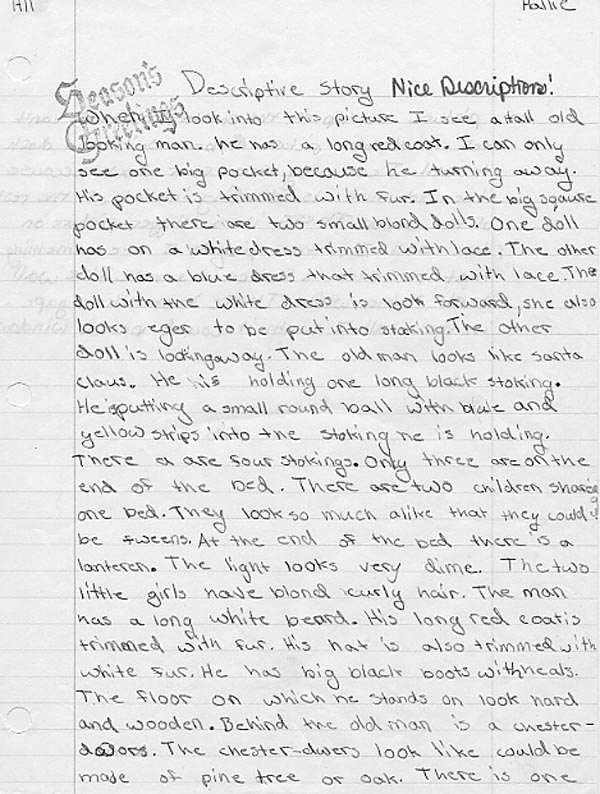 A11
Hallie
Season's
Greetings
Descriptive Story Nice Descriptions!
When I look into this picture I see a tall old
looking man. he has a long red coat. I can only
see one big pocket, because he turning away.
His pocket is trimmed with fur. In the big sqaure
pocket there are two small blond dolls. One doll
has on a white dress trimmed with lace. The other
doll has a blue dress that trimmed with lace. The
doll with the white dress is look forward, she also
looks eger to be put into stoking. The other
doll is looking away. The old man looks like santa
claus. He his holding one long black stoking.
He is putting a small round ball with blue and
yellow strips into the stoking he is holding.
There a are four stokings. Only three are on the
end of the bed. There are two children sharing
one bed. They look so much alike that they could
be tweens. At the end of the bed there is a
lanteren. The light looks very dime. The two
little girls have blond curly hair. The man
has a long white beard. His long red coat is
trimmed with fur. His hat is also trimmed with
white fur. He has big black boots with heals.
The floor on which he stands on look hard
and wooden. Behind the old man is a chester-
The chester-dwers look like could be
made of pine tree or oak. There is one